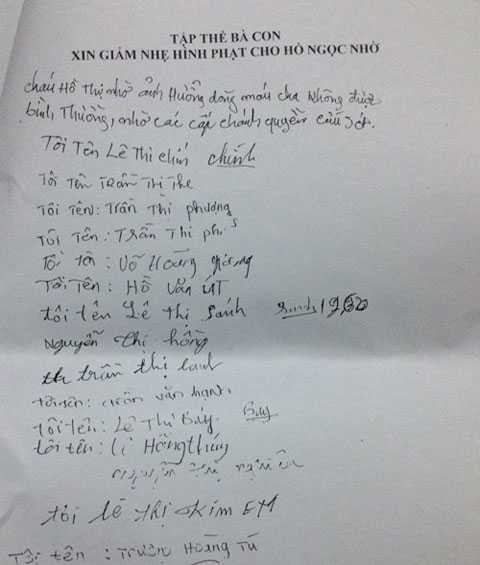 TẬP THỂ BÀ CON
XIN GIẢM NHẸ HÌNH PHẠT CHO HỒ NGỌC NHỜ
cháu Hồ Thị nhờ ảnh Hưởng dòng máu cha Không được
bình Thường, nhờ các cấp chánh quyền cứu xét.
Tôi Tên Lê Thi chín chính
Tôi Tên Trần Thị The
Tôi Tên: Trần Thi phương
Tôi Tên: Trần Thi phi
Tôi tên: Võ Hoàng
Tôi Tên: Hồ Văn ÚT
tôi tên Lê thị Sánh sinh 1960
Nguyễn thị hồng
trần thị lan
tôi tên: trần văn hạnh
tôi tên: Lê Thị Bảy. Bảy
tôi tên: Hồng thúy
tôi lê thị Kim EM
Tôi tên: Trương Hoàng Tú